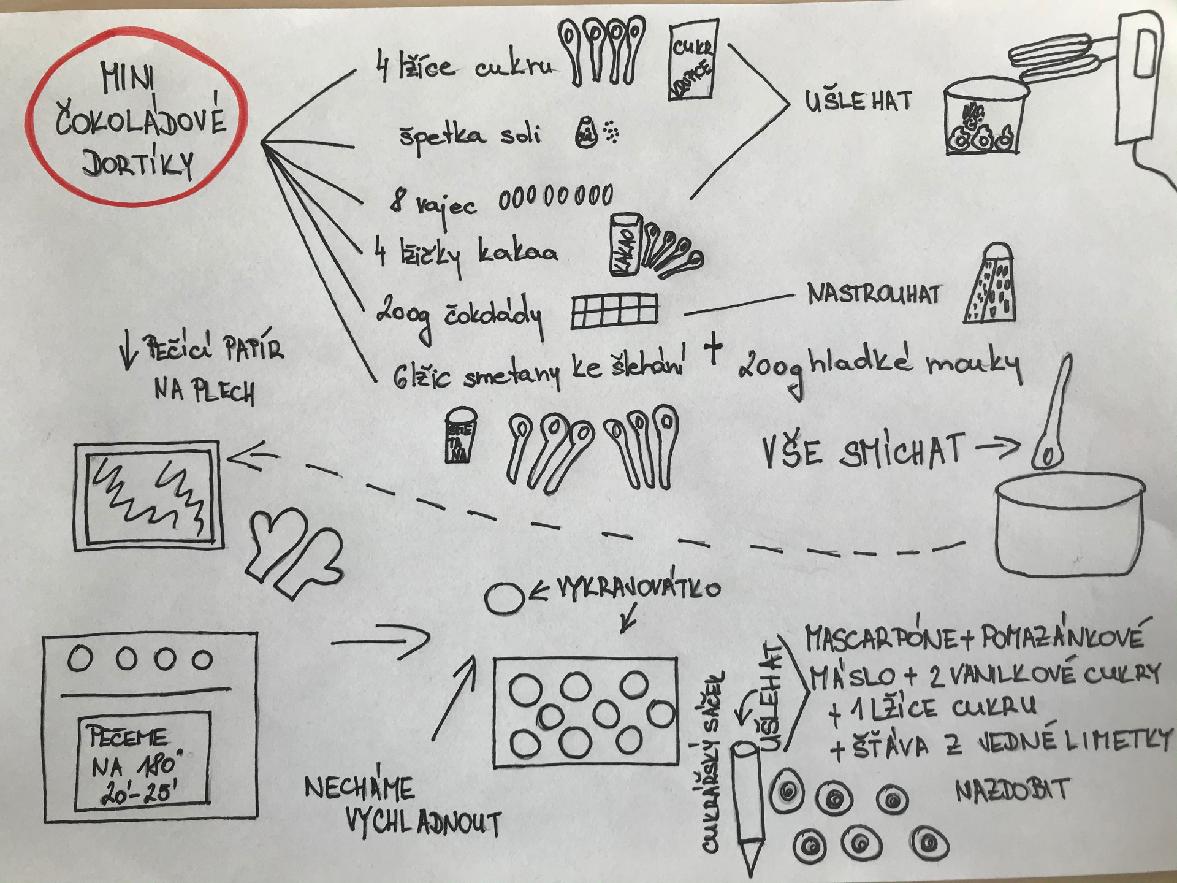 MINI
ČOKOLÁDOVÉ
DORTÍKY
4 lžíce cukru
CUKR
KRUPICE
špetka soli
8 vajec
UŠLEHAT
4 lžičky kakaa
KAKAO
200g čokolády
NASTROUHAT
6 lžic smetany ke šlehání + 200g hladké mouky
SME
TA
NA
VŠE SMÍCHAT
PEČÍCÍ PAPÍR
NA PLECH
PEČEME
NA 180°
20'-25'
NECHÁME
VYCHLADNOUT
VYKRAJOVÁTKO
CUKRÁŘSKÝ SÁČEK
UŠLEHAT
MASCARPÓNE + POMAZÁNKOVÉ
MÁSLO + 2 VANILKOVÉ CUKRY
+ 1 LŽÍCE CUKRU
+ ŠŤÁVA Z JEDNÉ LIMETKY
NAZDOBIT